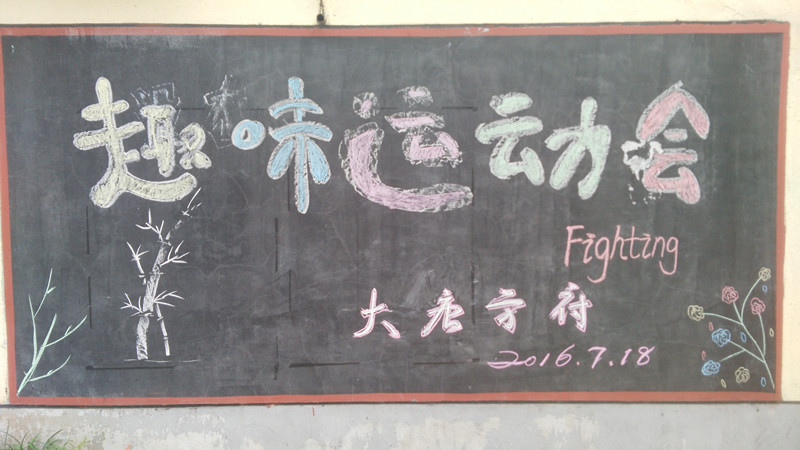 趣味运动会
Fighting
大唐守府
2016.7.18